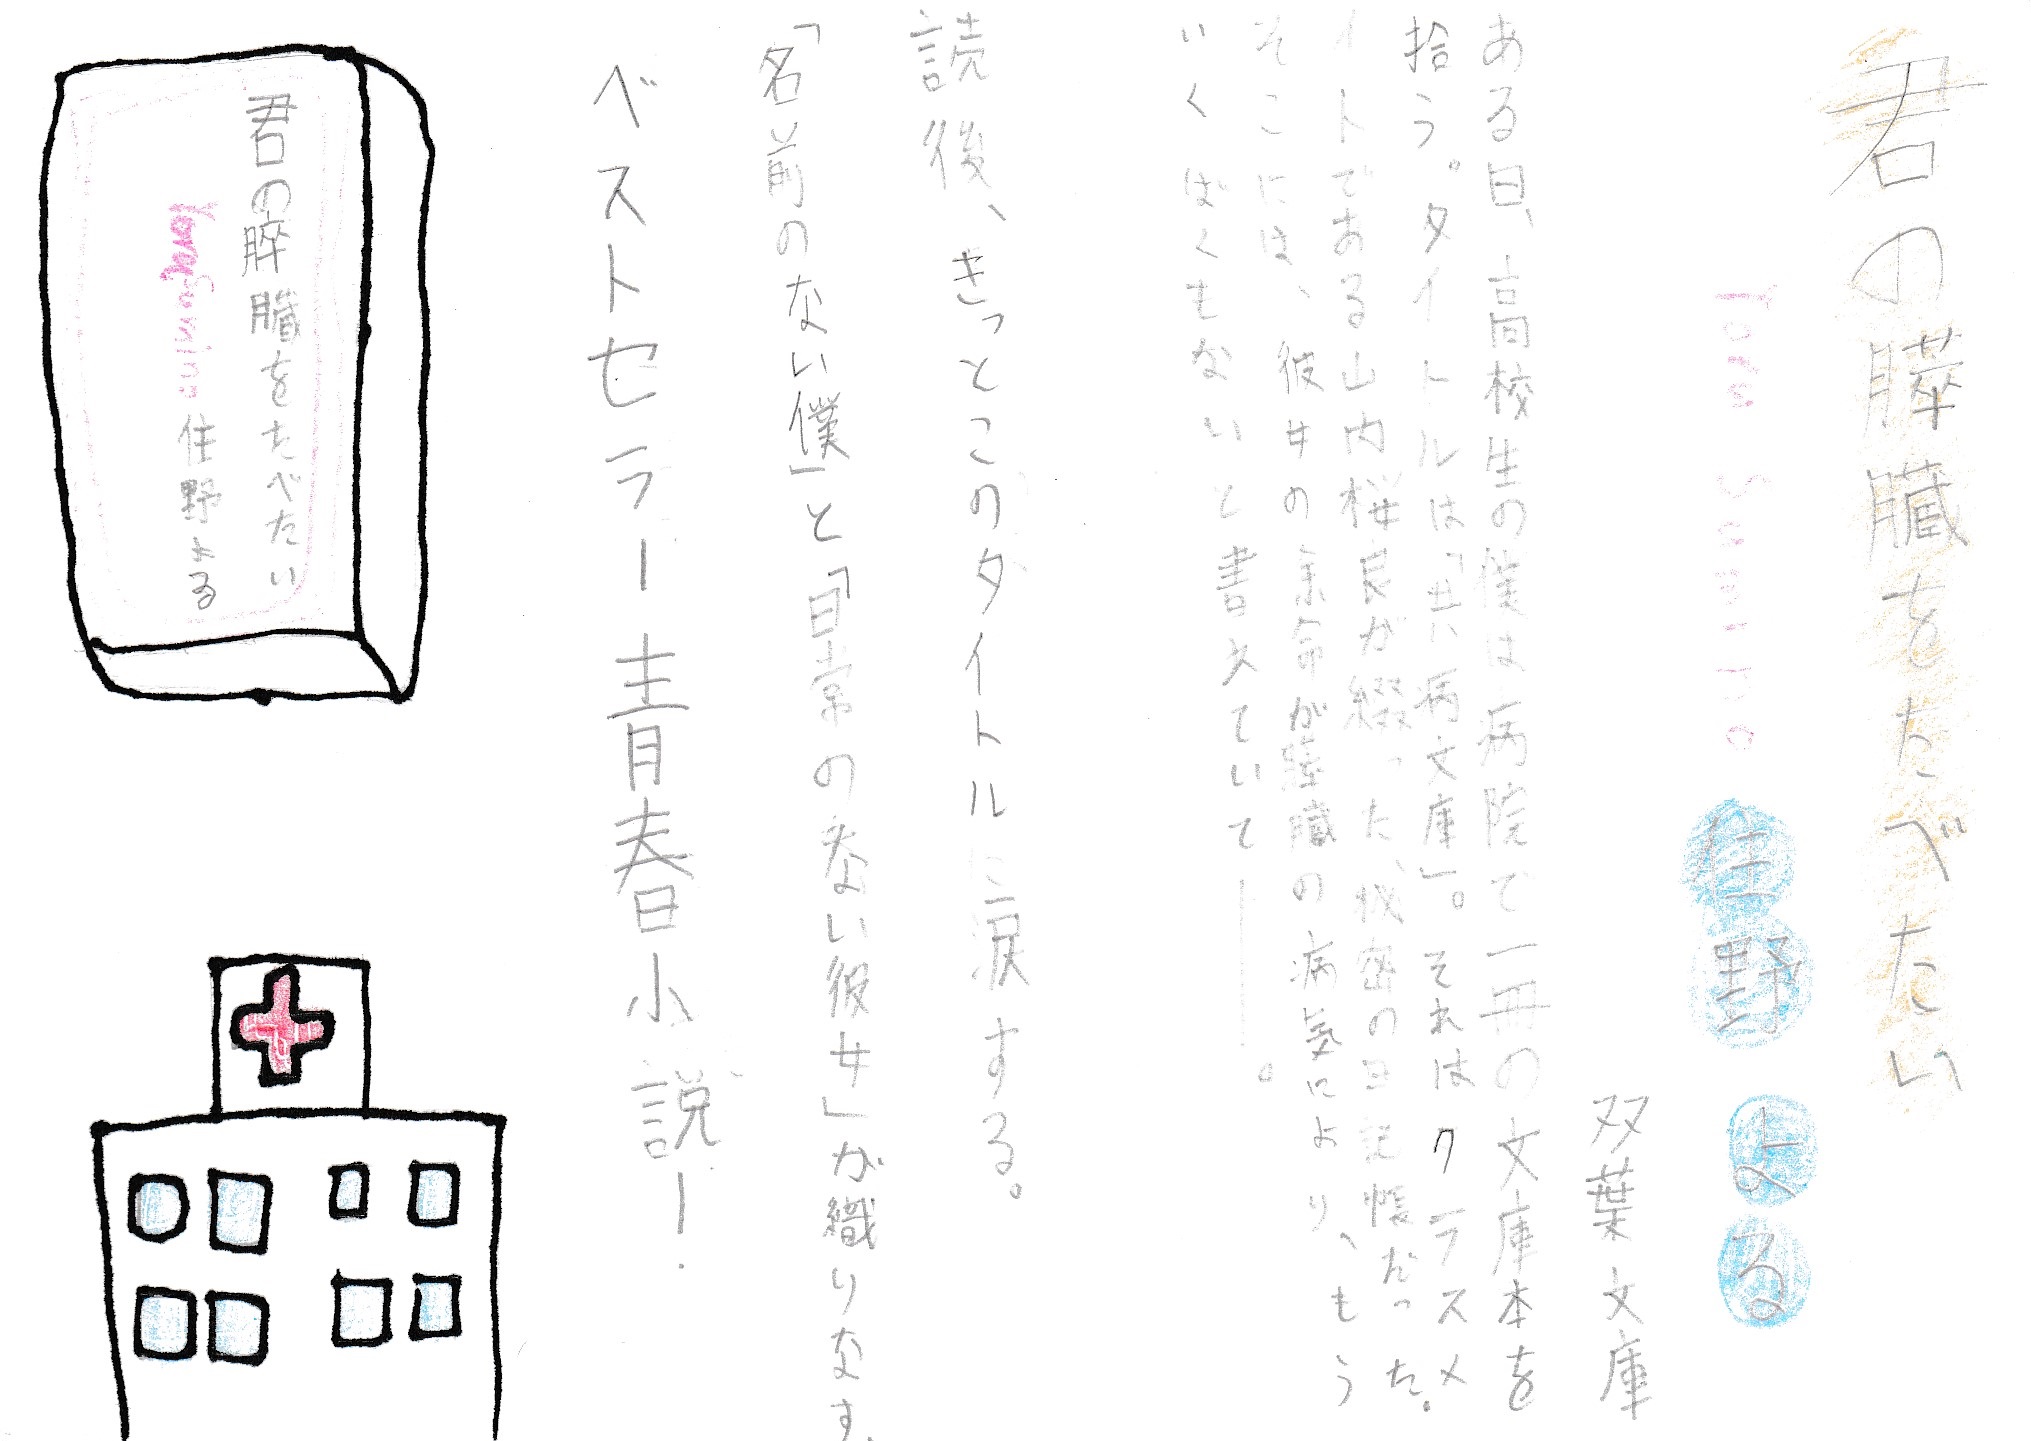 君の膵臓をたべたい
Toru Sumino
住野よる
双葉文庫
ある日、高校生の僕は病院で一冊の文庫本を
拾う。タイトルは「共病文庫」。それはクラスメ
イトである山内桜良が綴った、秘密の日記帳だった。
そこには、彼女の余命が膵臓の病気により、もう
いくばくもないと書えていて――。
読後、きっとこのタイトルに涙する。
「名前のない僕」と「日常のない彼女」が織りなす、
ベストセラー青春小説！
君の膵臓をたべたい
住野よる